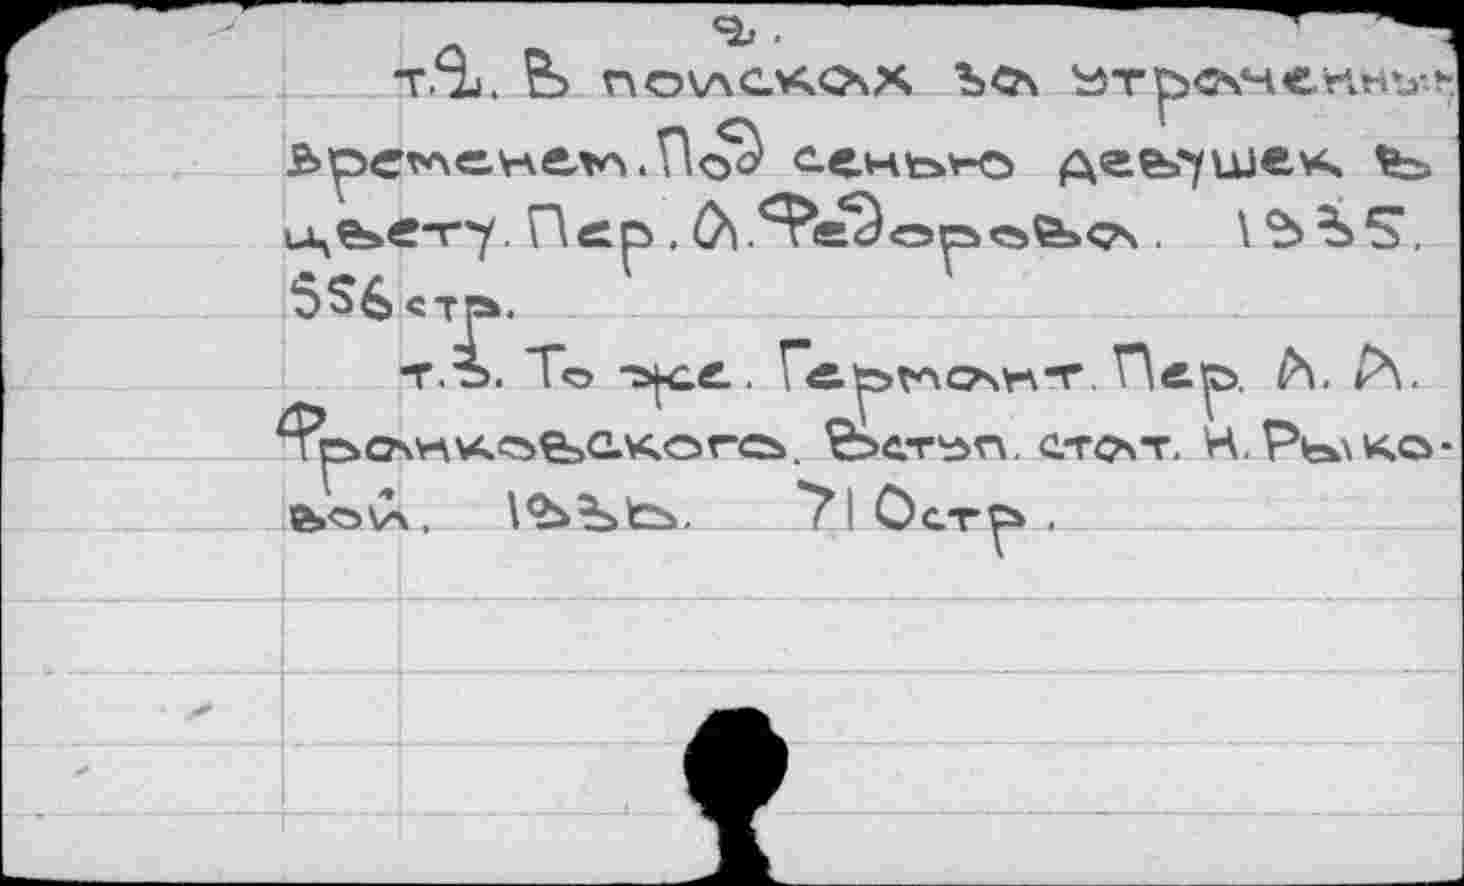 2.
т.2. В поисках за утраченным
временем. Под сенью девушек в
цвету. Пер. А. Федорова. 1935.
556 стр.
т.3. То же. Германт. Пер. А. А.
Франковского. Вступ. стат. Н. Рыко-
вой. 1936. 710 стр.